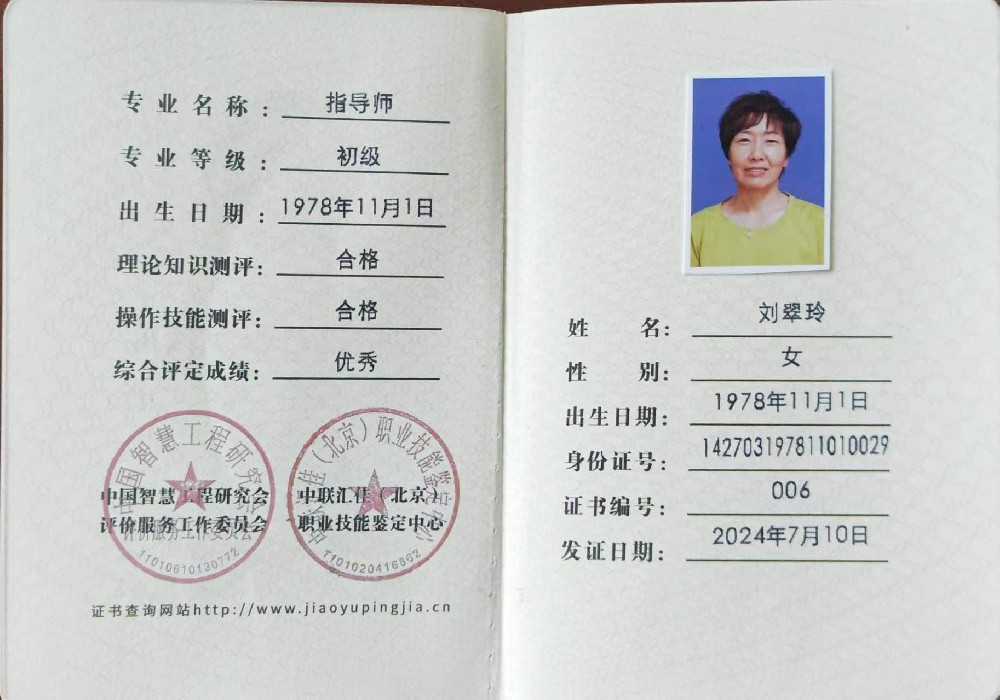 专业名称：指导师
专业等级：初级
出生日期：1978年11月1日
理论知识测评：合格
操作技能测评：合格
综合评定成绩：优秀
中国智慧工程研究会
评价服务工作委员会
1101061013077２
中联汇佳（北京）
职业技能鉴定中心
中联汇佳（北京）职业技能鉴定中心
1101020416862
证书查询网站http://www.jiaoyupingjia.cn
姓名：刘翠玲
性别：女
出生日期：1978年11月1日
身份证号：142703197811010029
证书编号：006
发证日期：2024年7月10日